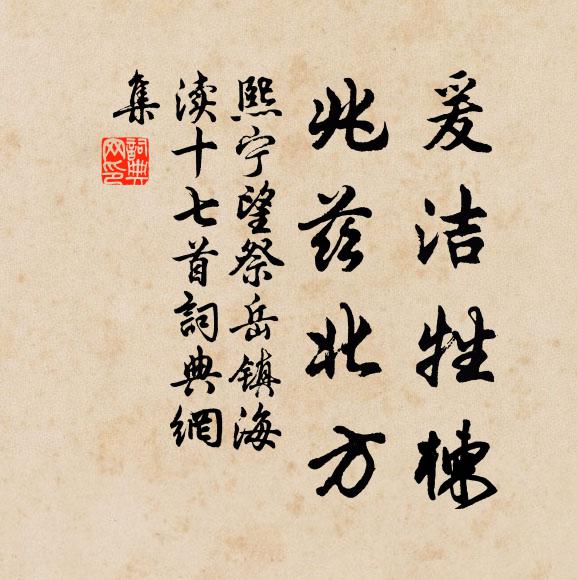 爰洁牲
兆兹北方
熙宁望祭岳镇海
渎十七首詞典網
集
詞典
网印